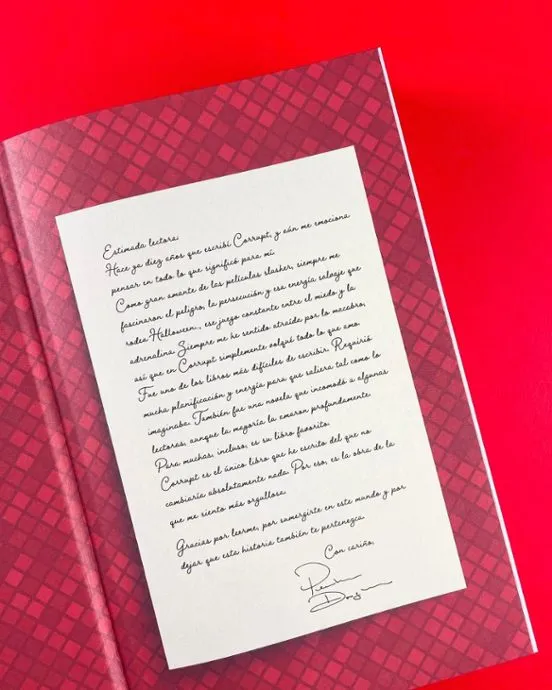 Estimada lectora:
Hace ya diez años que escribí Corrupt, y aún me emociona
pensar en todo lo que significó para mí.
Como gran amante de las películas slasher, siempre me
fascinaron el peligro, la persecución y esa energía salvaje que
rodea Halloween... ese juego constante entre el miedo y la
adrenalina. Siempre me he sentido atraída por lo macabro,
así que en Corrupt simplemente volqué todo lo que amo.
Fue uno de los libros más difíciles de escribir. Requirió
mucha planificación y energía para que saliera tal como lo
imaginaba. También fue una novela que incomodó a algunas
lectoras, aunque la mayoría la amaron profundamente.
Para muchas, incluso, es su libro favorito.
Corrupt es el único libro que he escrito del que no
cambiaría absolutamente nada. Por eso, es la obra de la
que me siento más orgullosa.
Gracias por leerme, por sumergirte en este mundo y por
dejar que esta historia también te pertenezca.
Con cariño,